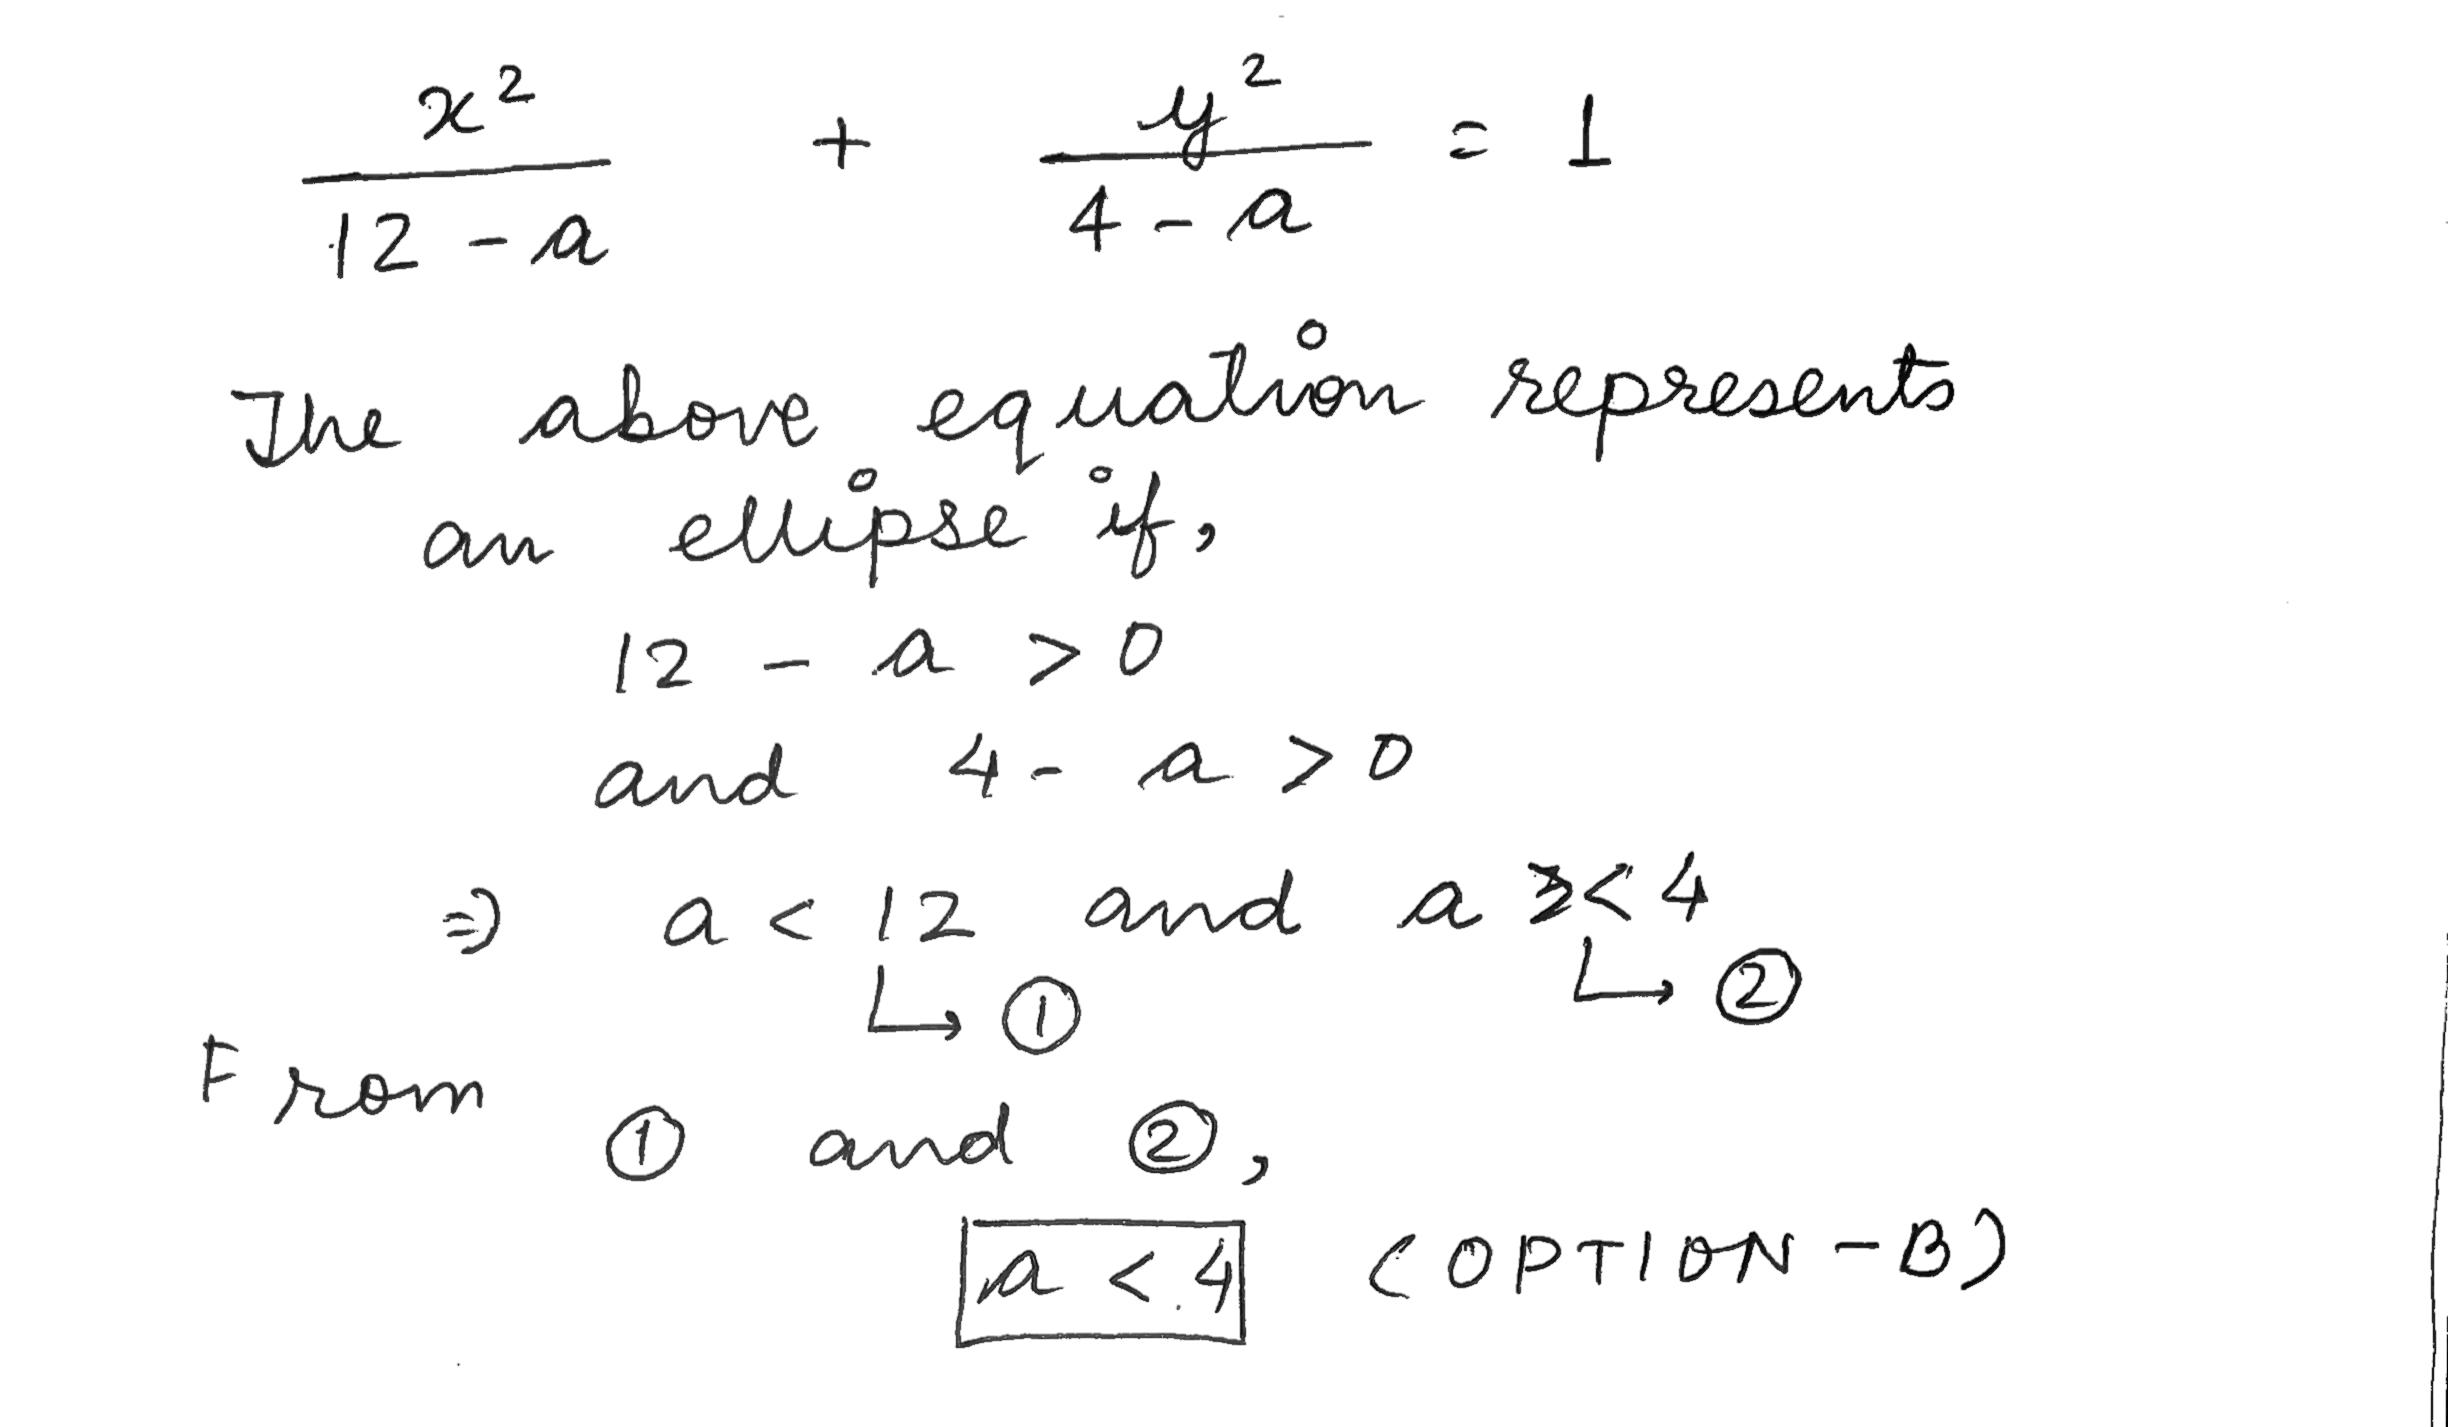 x² / 12 - a + y² / 4 - a = 1
The above equation represents
an ellipse if,
12 - a > 0
and 4 - a > 0
⇒ a < 12 and a < 4
↳ ① ↳ ②
From ① and ②,
a < 4 (OPTION - B)